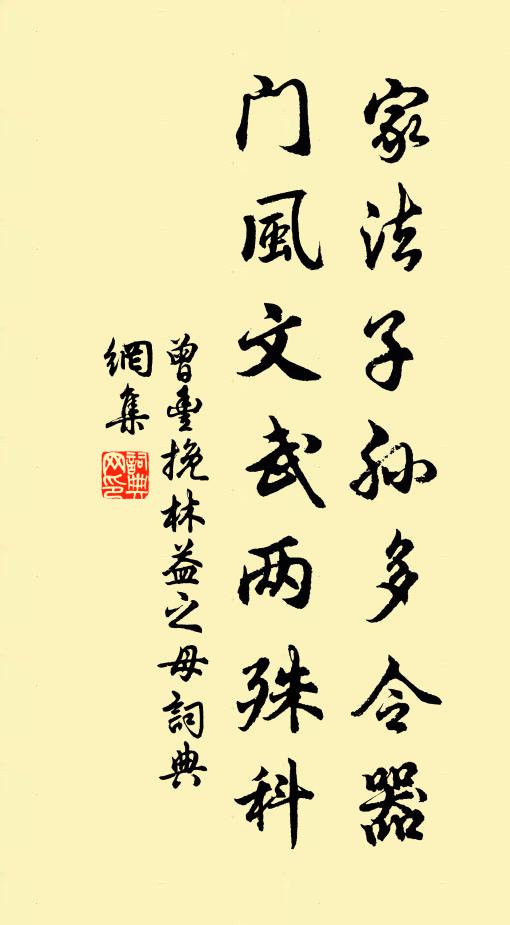 家法子孙多令器
门風文武两殊科
曾豐挽林益之母詞典
網集
詞典
网印